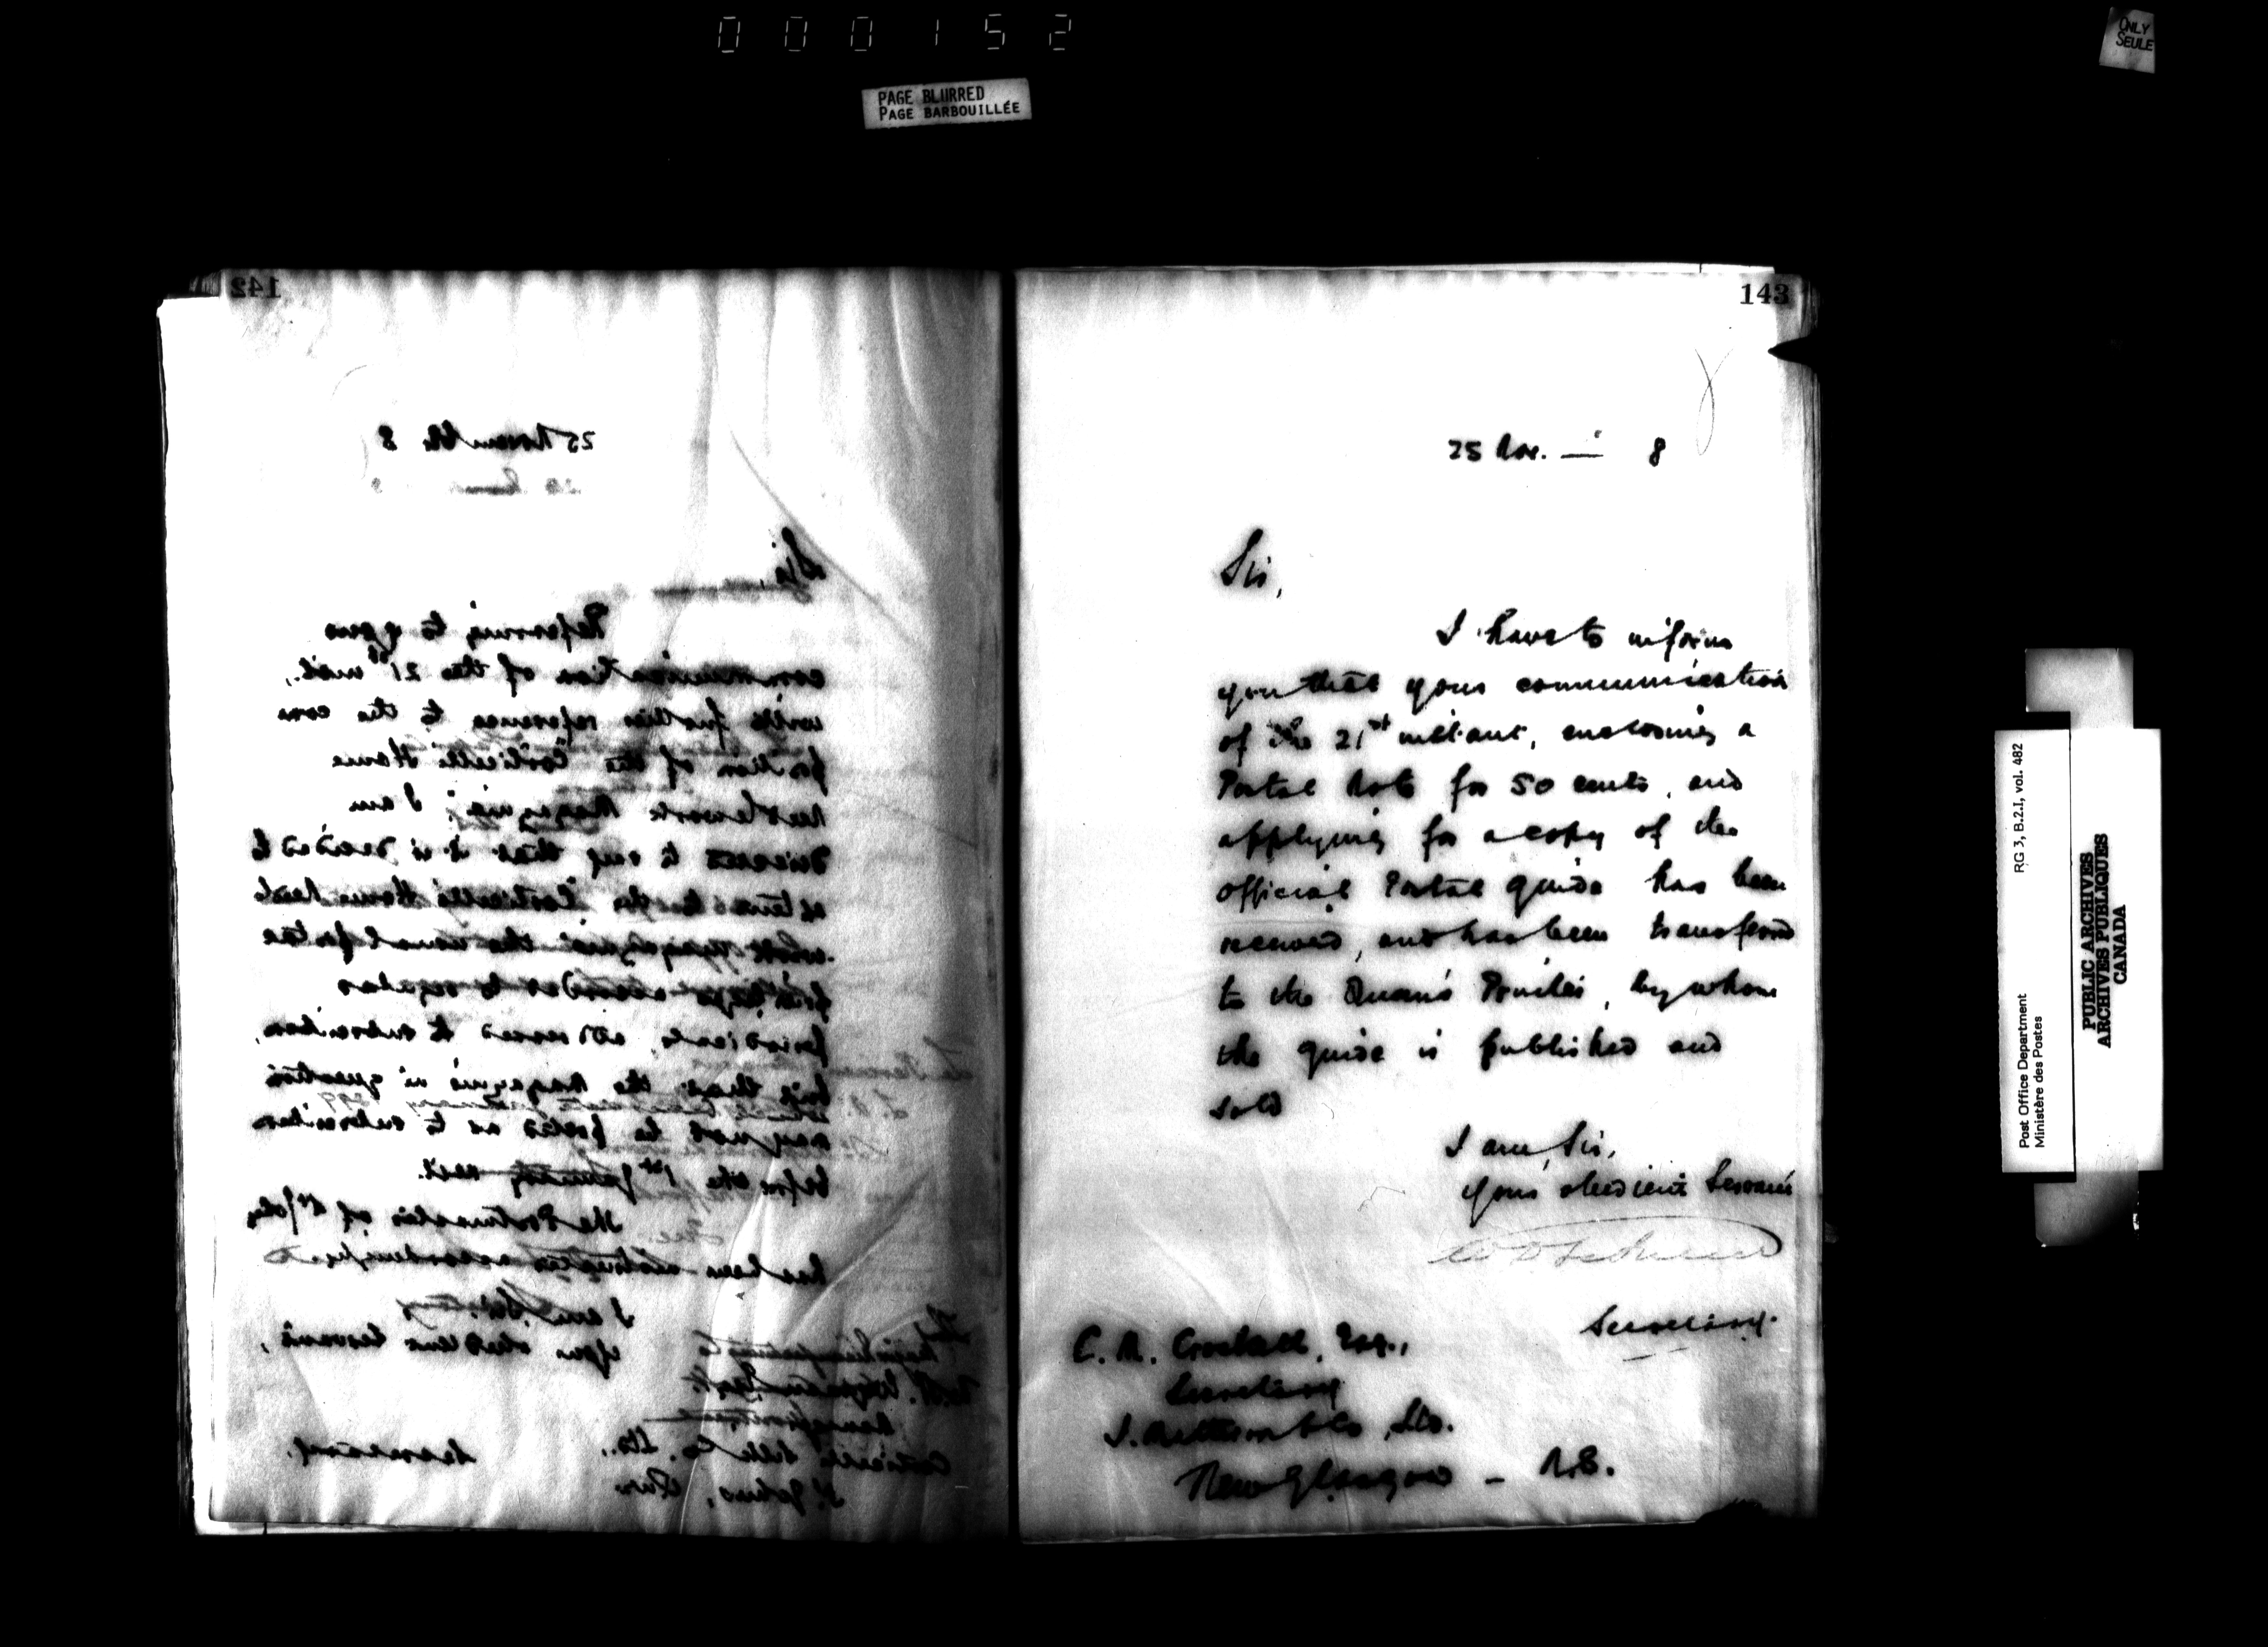 000152
PAGE BLURRED
PAGE BARBOUILLÉE
ONLY
SEULE
142
25 November 8
Sir,
Referring to your
communication of the 21st inst.,
with further reference to the com
position of the "Corticelli Home
Needlework Magazine", I am
directed to say that it is decided to
extend to the "Corticelli Home Needle
work Magazine" the usual postal
privileges accorded to regular
periodicals, addressed to subscribers,
but that the magazine in question
may not be posted as to subscribers
before the 1st January next.
The Postmaster of St Johns
has been instructed accordingly.
I am, Sir,
Your obedient Servant,
Secretary.
Corticelli Silk Co. Ltd.,
St. Johns, Que
143
25 Nov. — 8
Sir,
I have to inform
you that your communication
of the 21st instant, enclosing a
Postal Note for 50 cents, and
applying for a copy of the
Official Postal Guide has been
received, and has been transferred
to the Queen's Printer, by whom
the guide is published and
sold
I am, Sir,
Your obedient Servant
Secretary.
C. M. Crockett, Esq.,
Secretary
J. Matheson & Co, Ltd.
New Glasgow - N.S.
Post Office Department
Ministère des Postes
RG 3, B.2.I, vol. 482
PUBLIC ARCHIVES
ARCHIVES PUBLIQUES
CANADA